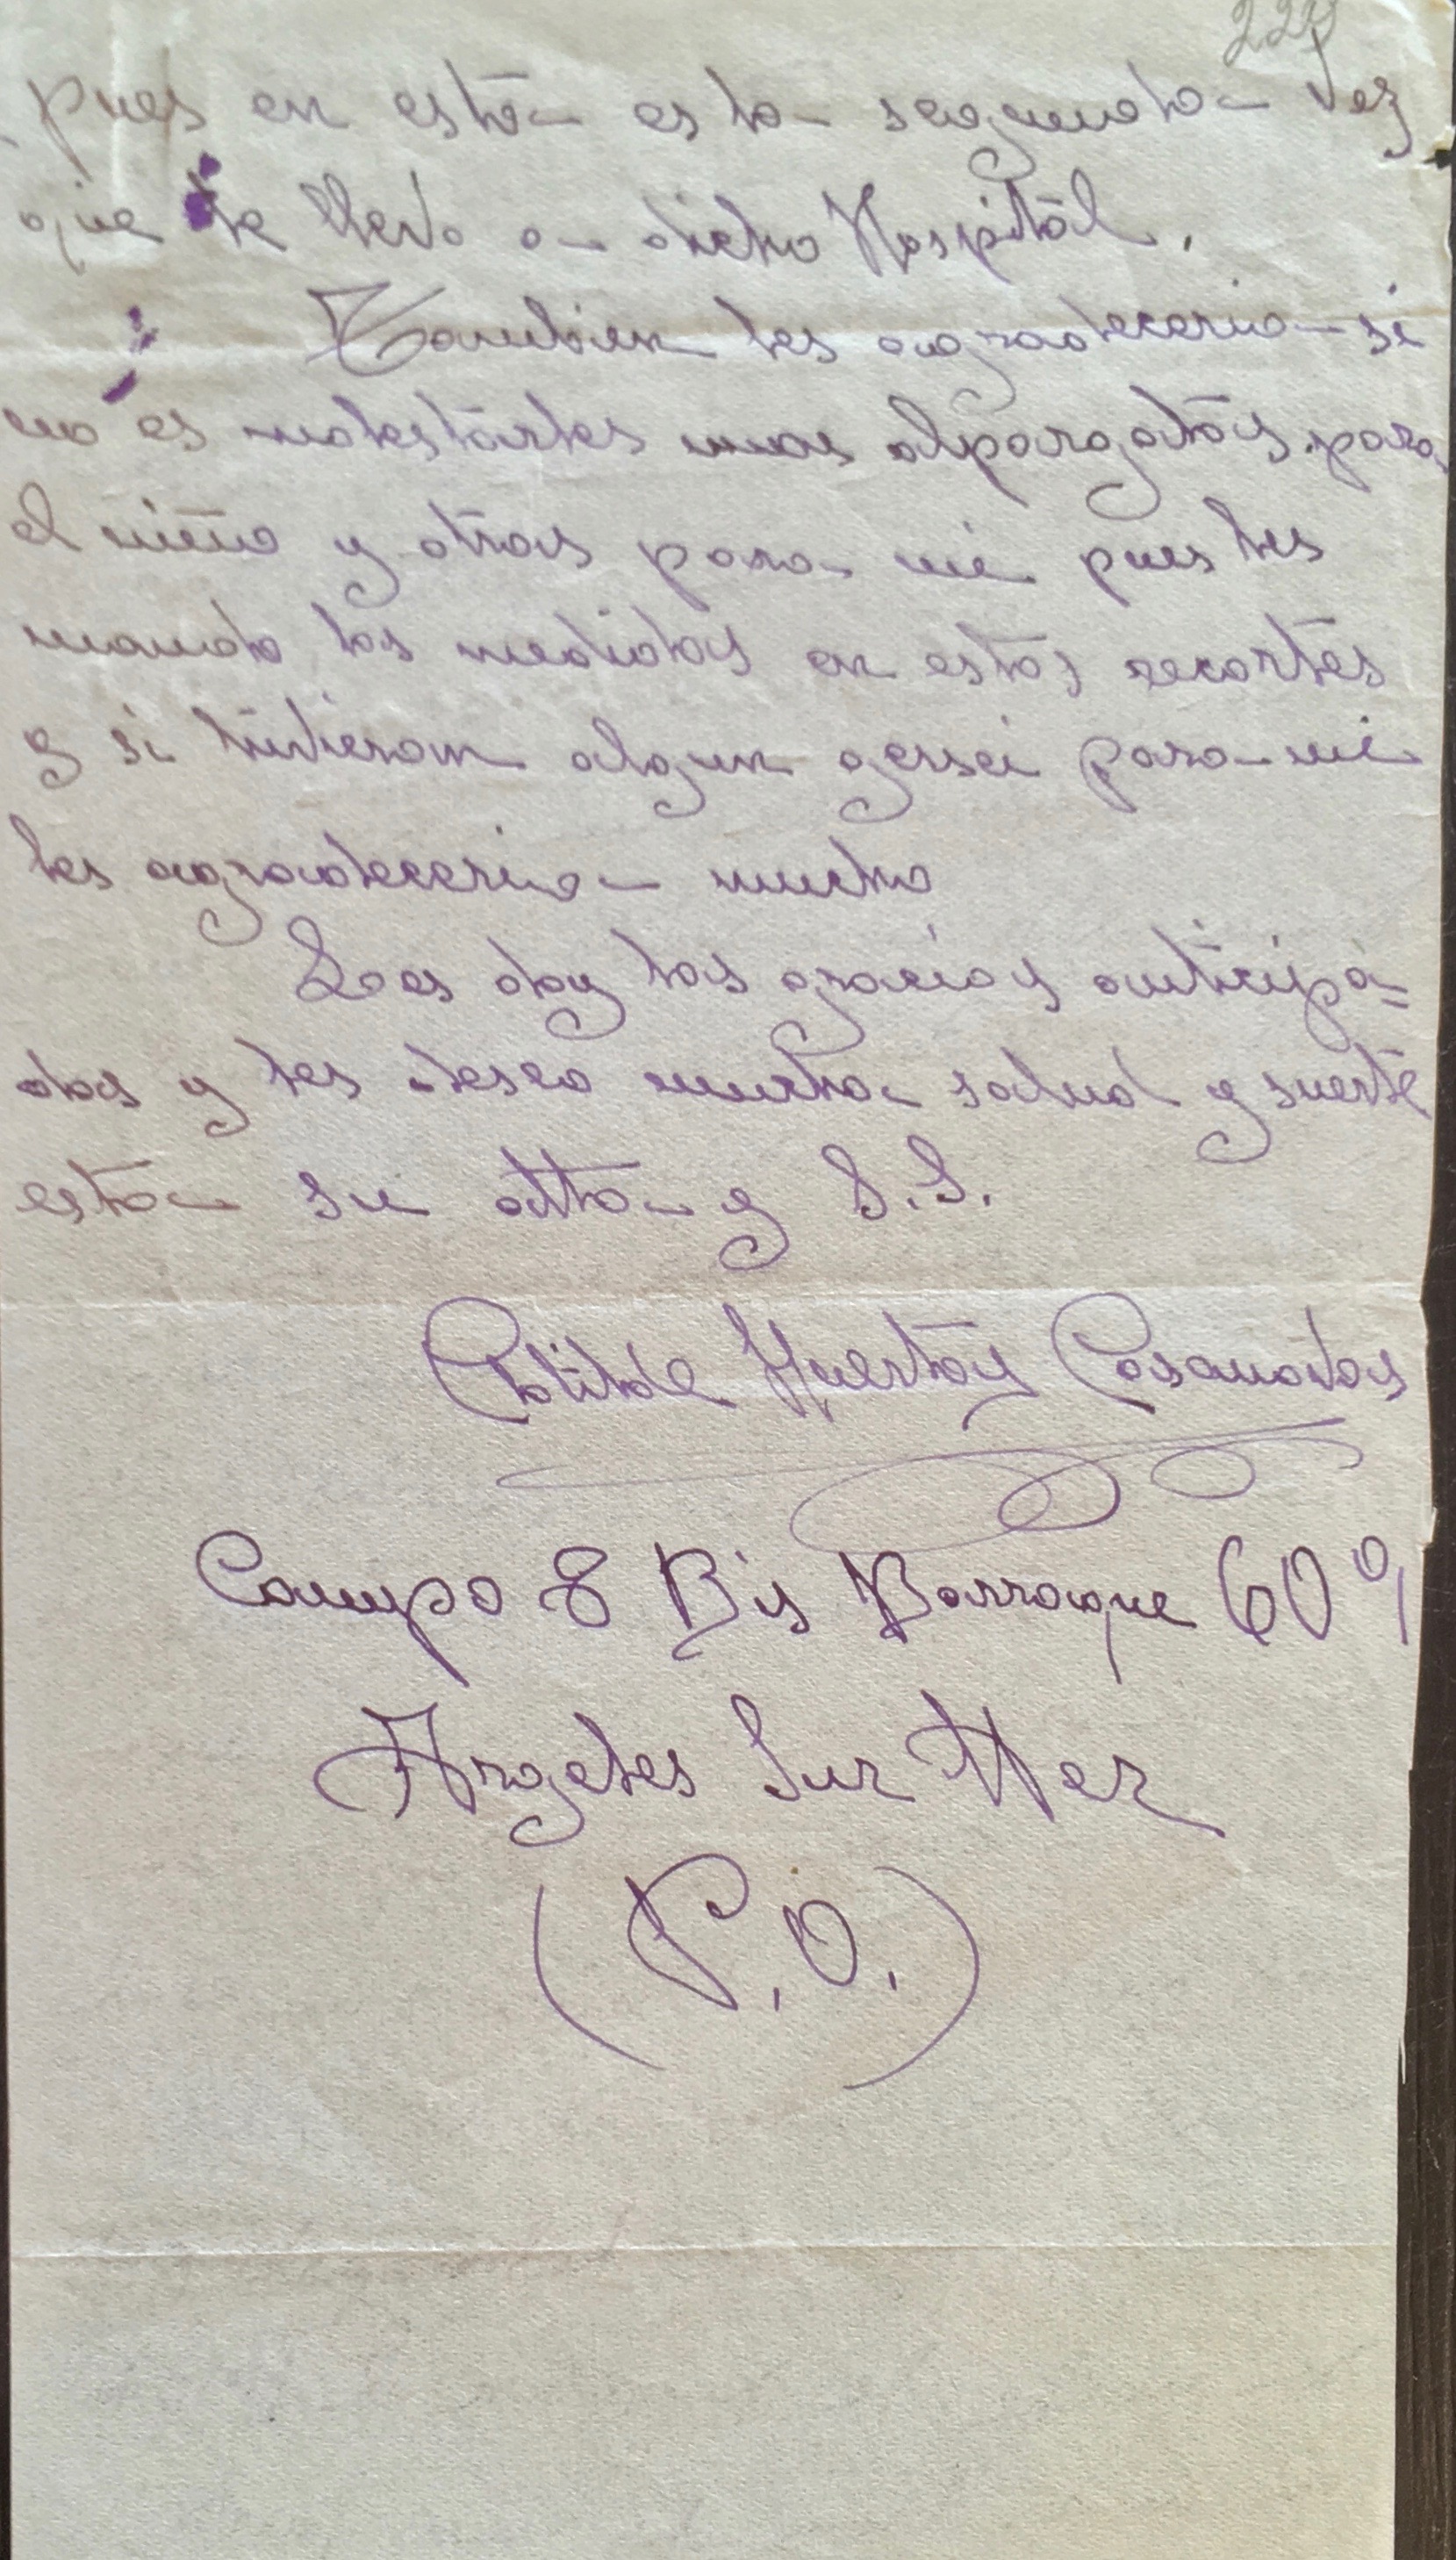 pues en esta es la segunda vez
que le llevo a dicho Hospital.
Tambien les agradeceria si
no es molestarles unas alpargatas para
el niño y otras para mi pues les
mando las medidas en estos recortes
y si tuvieran algun gersei para mi
les agradeceria mucho
Les doy las gracias anticipa=
das y les deseo mucha salud y suerte
esta su atta y S.S.
Clotilde Huertas Casanovas
Campo 8 Bis Barraque 60
Argeles Sur Mer
(P.O.)